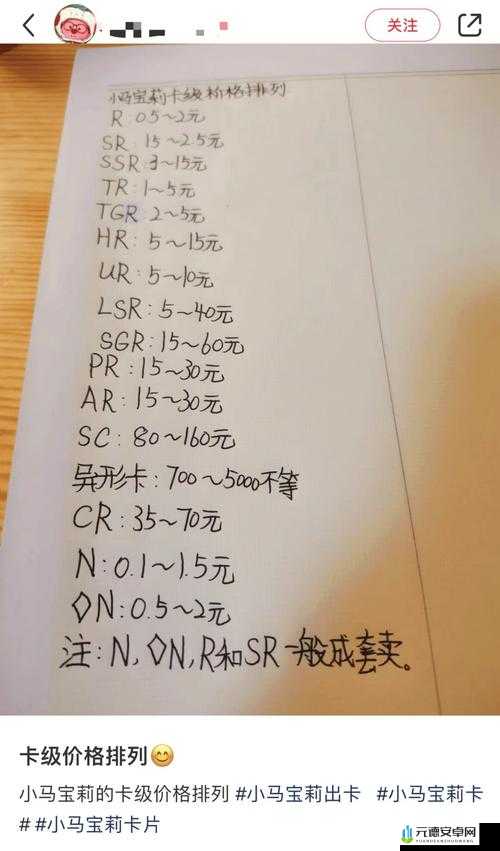 关注
小马宝莉卡级价格排列
R:0.5~2元
SR:15~2.5元
SSR:3~15元
TR:1~5元
TGR:2~5元
HR:5~15元
UR:5~10元
LSR:5~40元
SGR:15~60元
PR:15~30元
AR:15~30元
SC:80~160元
异形卡:700~5000不等
CR:35~70元
N:0.1~1.5元
◇N:0.5~2元
注:N,◇N,R和SR一般成套卖。
卡级价格排列😊
小马宝莉的卡级价格排列 #小马宝莉出卡 #小马宝莉卡
# #小马宝莉卡片
元德安卓网